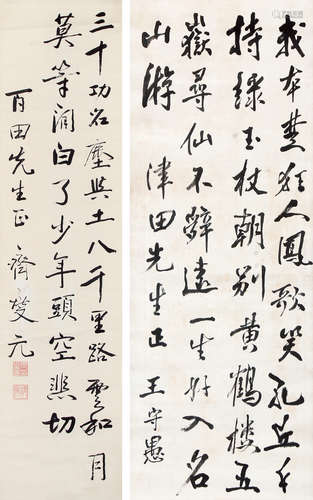 我本楚狂人鳳歌笑孔丘手
持綠玉杖朝別黃鶴樓五
嶽尋仙不辭遠一生好入名
山游 津田先生正 王守愚
三十功名塵與土八千里路雲和月
莫等閒白了少年頭空悲切
百田先生正 齊燮元